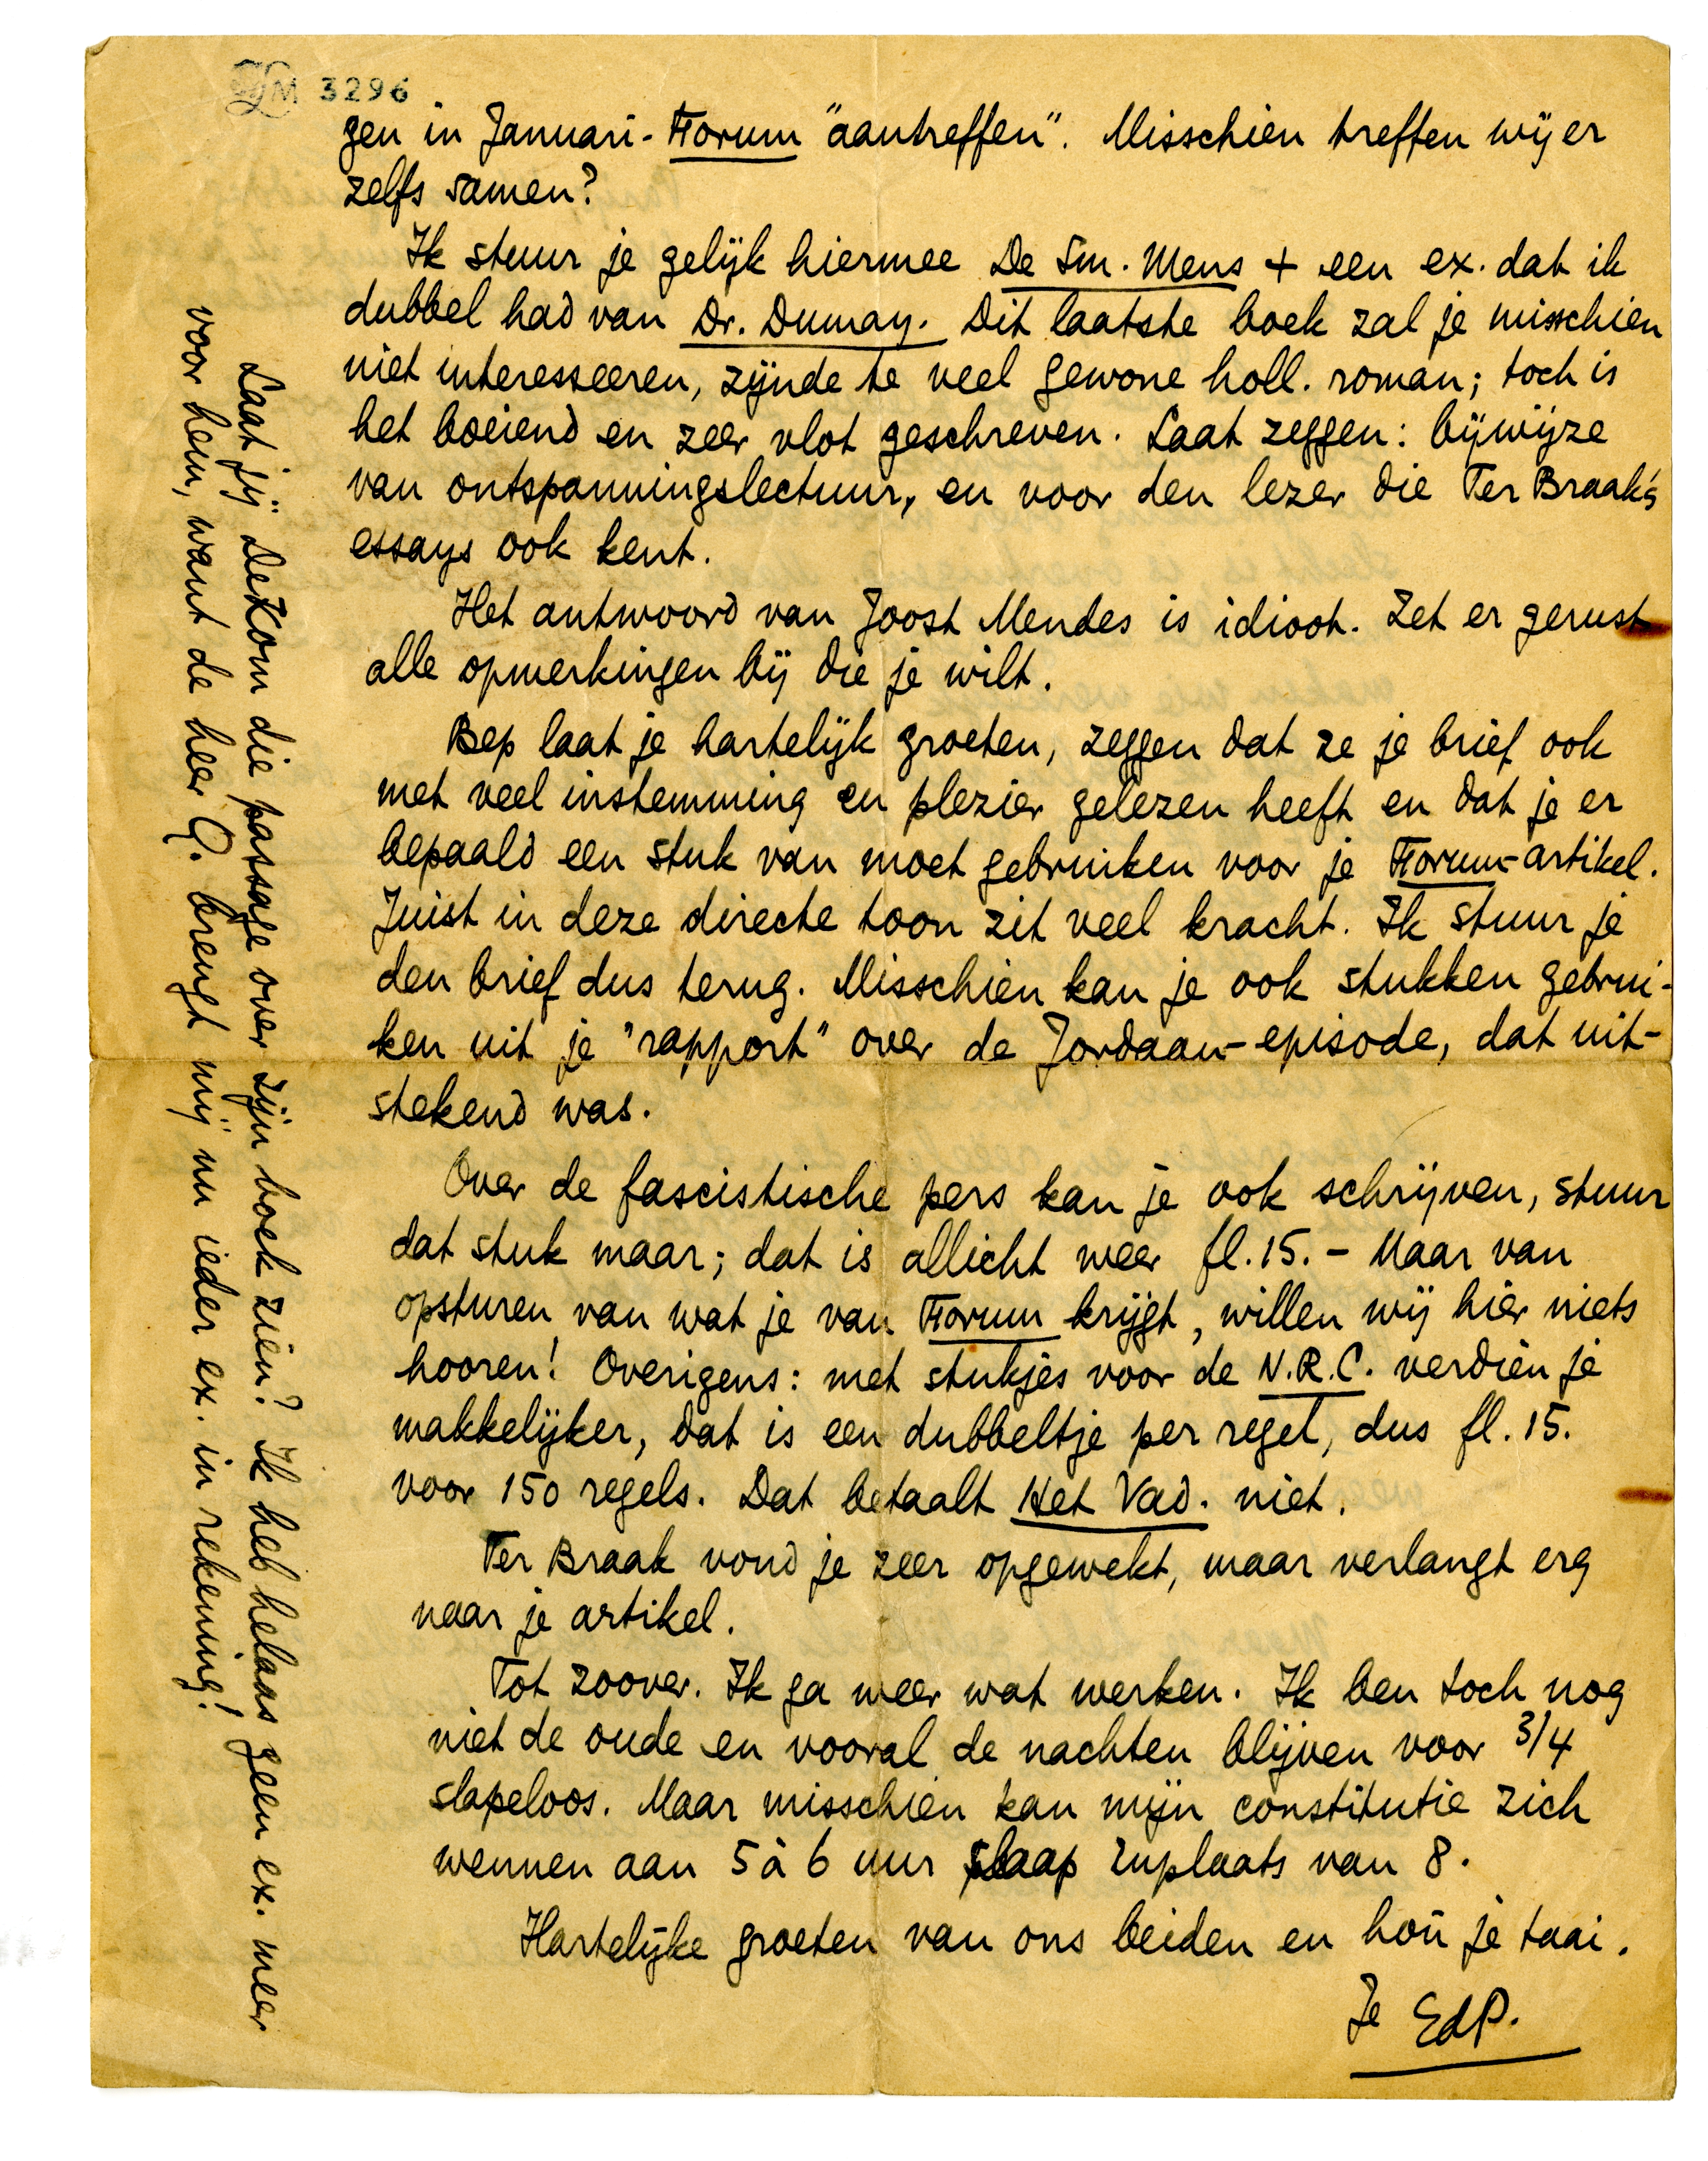 LM 3296
gen in Januari-Forum "aantreffen". Misschien treffen wij er
zelfs samen?
Ik stuur je gelijk hiermee De Sm. Mens + een ex. dat ik
dubbel had van Dr. Dumay. Dit laatste boek zal je misschien
niet interesseeren, zijnde te veel gewone holl. roman; toch is
het boeiend en zeer vlot geschreven. Laat zeggen: bijwijze
van ontspanningslectuur, en voor den lezer die Ter Braak's
essays ook kent.
Het antwoord van Joost Mendes is idioot. Zet er gerust
alle opmerkingen bij die je wilt.
Bep laat je hartelijk groeten, zeggen dat ze je brief ook
met veel instemming en plezier gelezen heeft en dat je er
bepaald een stuk van moet gebruiken voor je Forum-artikel.
Juist in deze directe toon zit veel kracht. Ik stuur je
den brief dus terug. Misschien kan je ook stukken gebrui-
ken uit je "rapport" over de Jordaan-episode, dat uit-
stekend was.
Over de fascistische pers kan je ook schrijven, stuur
dat stuk maar; dat is allicht weer fl. 15.- Maar van
opsturen van wat je van Forum krijgt, willen wij hier niets
hooren! Overigens: met stukjes voor de N.R.C. verdien je
makkelijker, dat is een dubbeltje per regel, dus fl. 15.
voor 150 regels. Dat betaalt Het Vad. niet.
Ter Braak vond je zeer opgewekt, maar verlangt erg
naar je artikel.
Tot zoover. Ik ga weer wat werken. Ik ben toch nog
niet de oude en vooral de nachten blijven voor 3/4
slapeloos. Maar misschien kan mijn constitutie zich
wennen aan 5 à 6 uur slaap inplaats van 8.
Hartelijke groeten van ons beiden en hou je taai.
Je EdP.
Laat jij De Kom die passage over zijn boek zien? Ik heb helaas geen ex. meer
voor hem, want de heer Q. brengt mij nu ieder ex. in rekening!